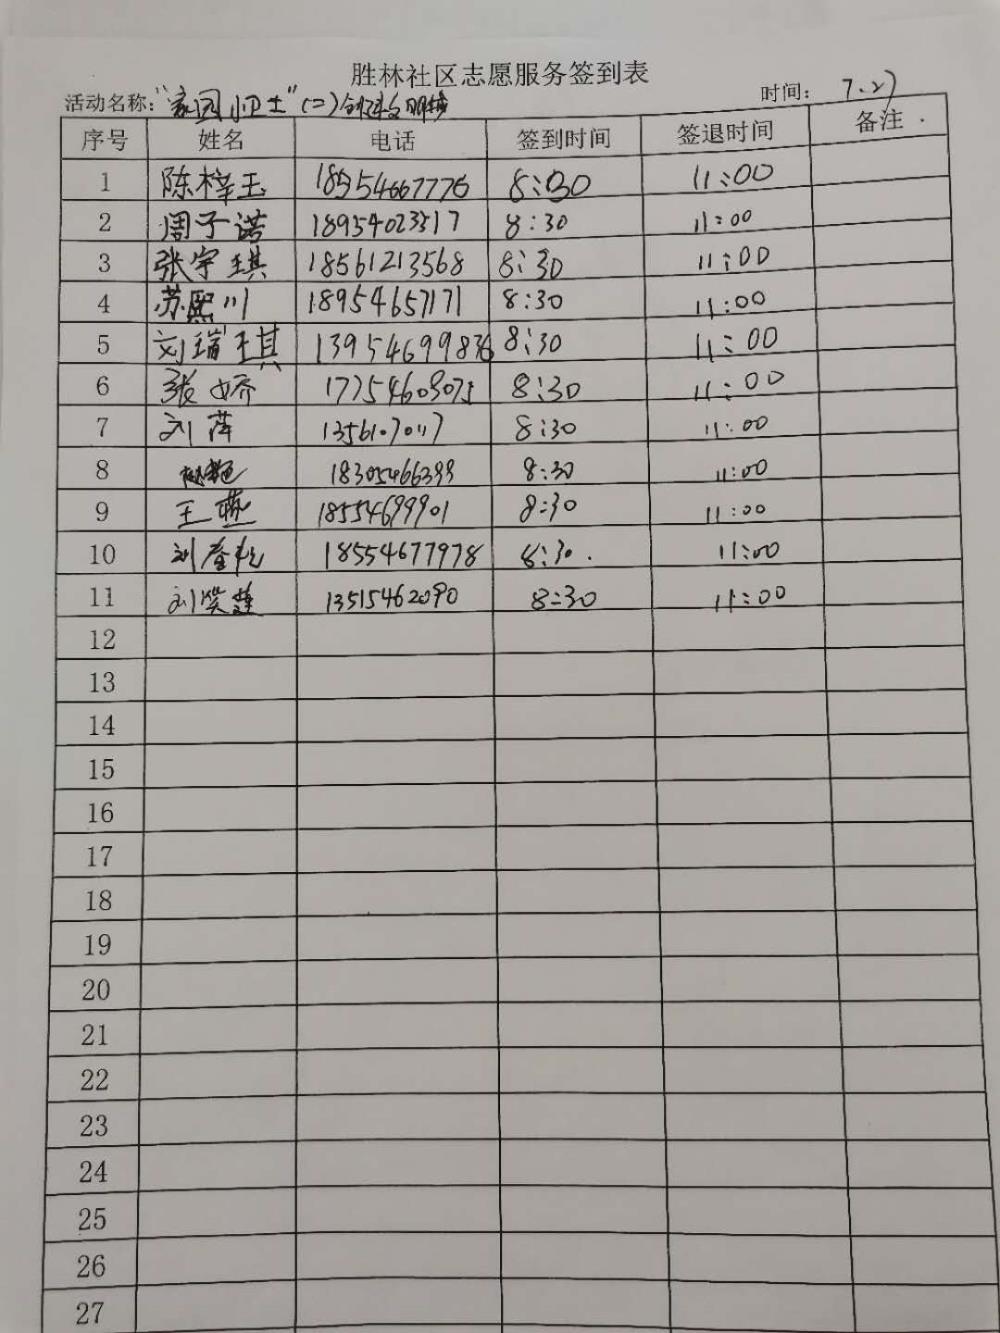 胜林社区志愿服务签到表
活动名称："家园小卫士"（二）创建文明城 时间： 7.27
序号 姓名 电话 签到时间 签退时间 备注
1 陈梓玉 18954667776 8:30 11:00
2 周子诺 18954023517 8:30 11:00
3 张宇琪 18561213568 8:30 11:00
4 苏熙川 18954657171 8:30 11:00
5 刘瑞琪 13954699836 8:30 11:00
6 张娇 17754609075 8:30 11:00
7 刘萍 13561070117 8:30 11:00
8 18305466399 8:30 11:00
9 王燕 18554699901 8:30 11:00
10 刘 18554677978 8:30. 11:00
11 刘笑 13515462090 8:30 11:00
12
13
14
15
16
17
18
19
20
21
22
23
24
25
26
27